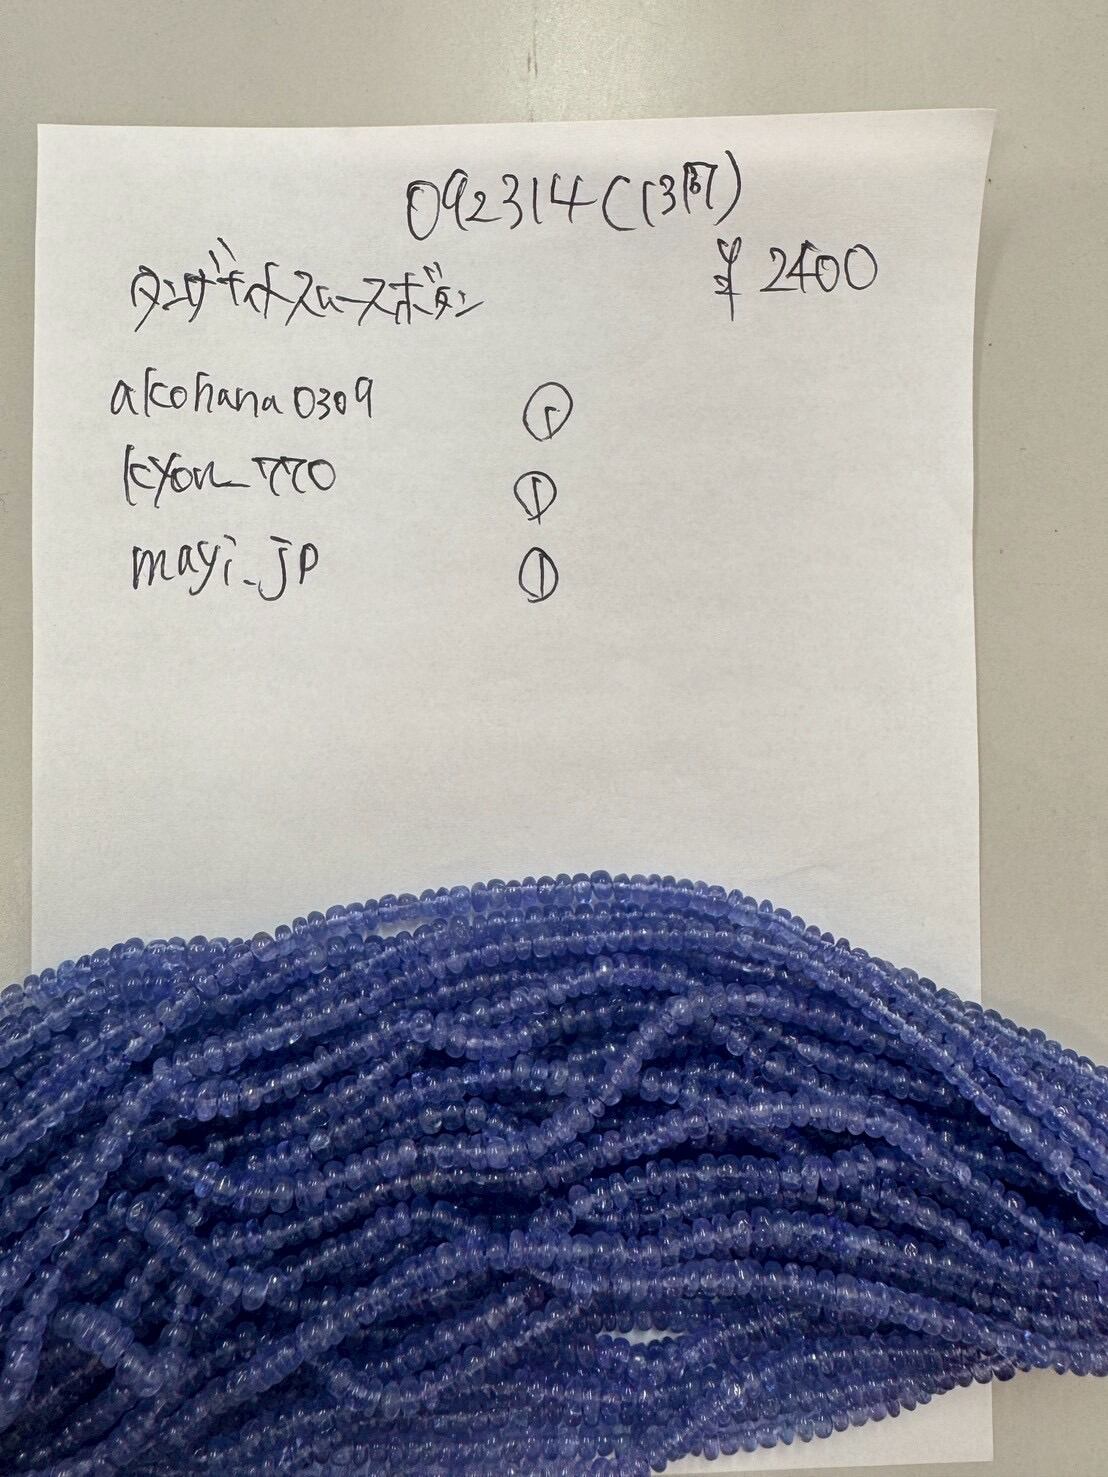 092314C(13関)
¥2400
タンザナイトスムースボタン
akohana0309 ①
kyon_770 ①
mayi_jp ①